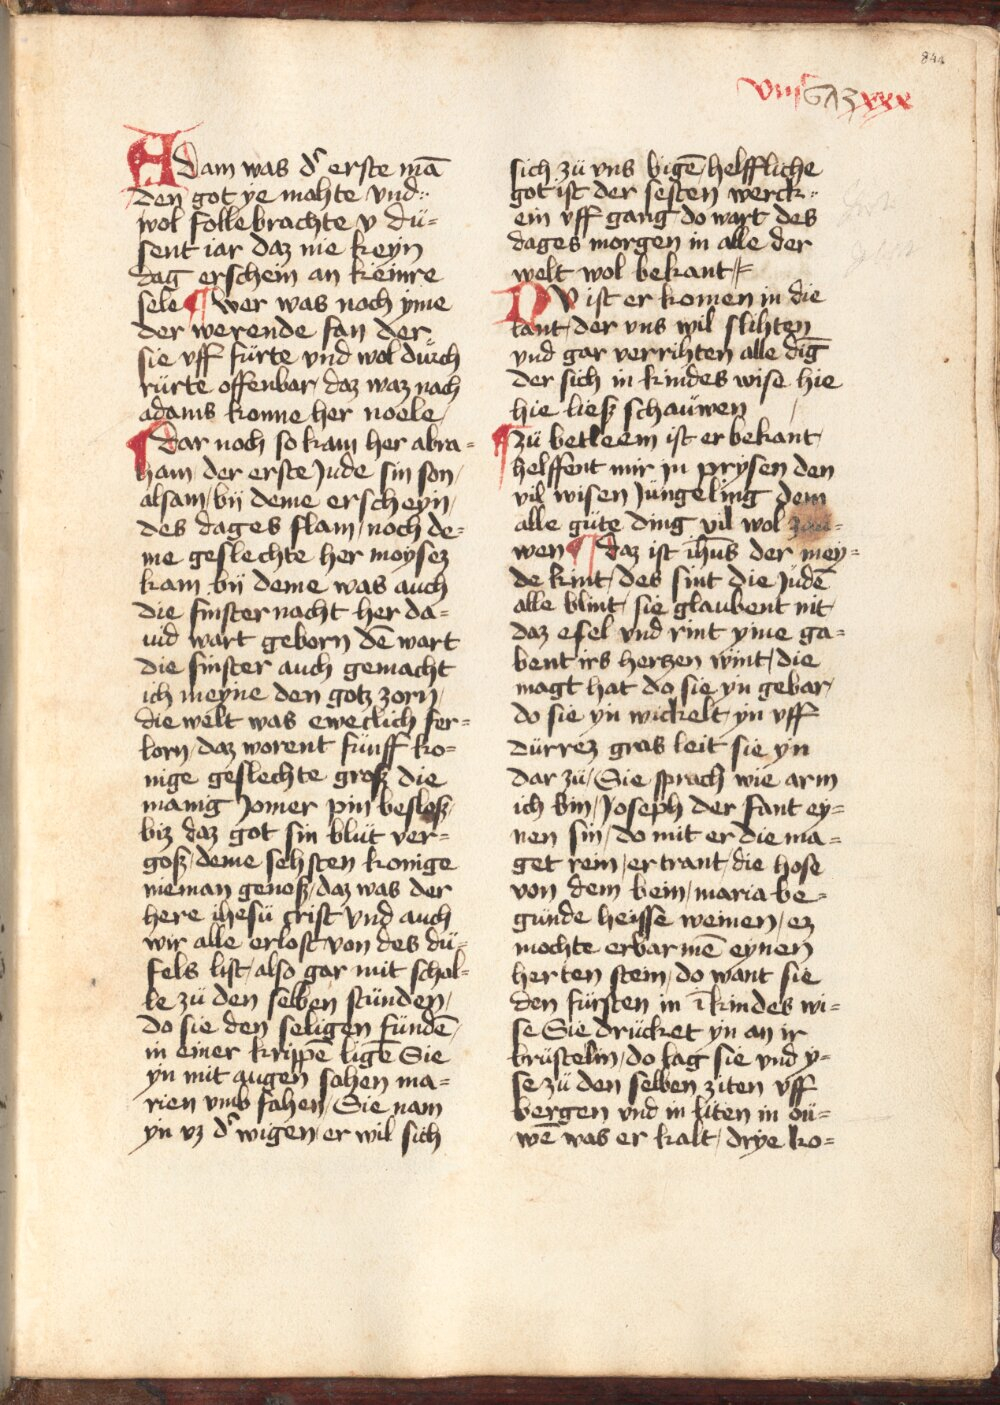 844
viijᶜ 673 xxx
Adam was dʳ erste mā
den got ye mahte vnd
wol follebrachte v dü=
sent iar daz nie keyn
dag erschein an keinre
sele ¶ wer was noch yme
der werende fan der
sie vff fürte vnd wol dürch
rürte offenbar / daz waz nach
adams konne her noele /
¶ Dar noch so kam her abra=
ham / der erste Jude sin son /
alsam / bij deme erscheyn /
des dages flam / noch de=
me geslechte her moysez
kam bij deme was auch
die finster nacht her da=
uid wart geborn de wart
die finster auch gemacht
ich meyne den gotz zorn /
die welt was eweclich fer=
lorn / daz worent fünff ko=
nige geslechte groß die
manig Jomer pin besloß /
biz daz got sin blüt ver=
goß / deme sehsten konige
nieman genoß / daz was der
here ihesü crist vnd auch
wir alle erlost von des dü=
fels list / also gar mit schal=
le zü den selben stünden /
do sie den seligen fündē /
in einer krippē ligē Sie
yn mit augen sahen ma=
rien vmb fahen / Sie nam
yn vz dʳ wigen / er wil sich
sich zü vns bigē / helffliche
got ist der sesten werck
ein vff gang do wart des
dages morgen in alle der
welt wol bekant /
DV ist er komen in die
lant / der vns wil slihten
vnd gar verrihten alle dīg
der sich in kindes wise hie
hie ließ schaüwen /
¶ zü betleem ist er bekant /
helffent mir jn prysen den
vil wisen Jüngeling dem
alle güte ding vil wol
wen ¶ daz ist ihūs der mey=
de kint / des sint die Judē
alle blint / sie glaubent nit
daz esel vnd rint yme ga=
bent irs hertzen wint / die
magt hat do sie yn gebar /
do sie yn wickelt yn vff
dürrez gras leit sie yn
dar zü / Sie sprach wie arm
ich bin / Joseph der fant ey=
nen sin / do mit er die ma=
get rein / ertrant / die hose
von dem bein / maria be=
günde heisse weinen / ez
mochte erbarmē eynen
herten stein / do want sie
den fürsten in ī kindes wi=
se Sie drücket yn an ir
brüstelin / do lag sie vnd y=
se zü den selben ziten vff
bergen vnd in liten in oü=
wē was er kalt / drye ko=